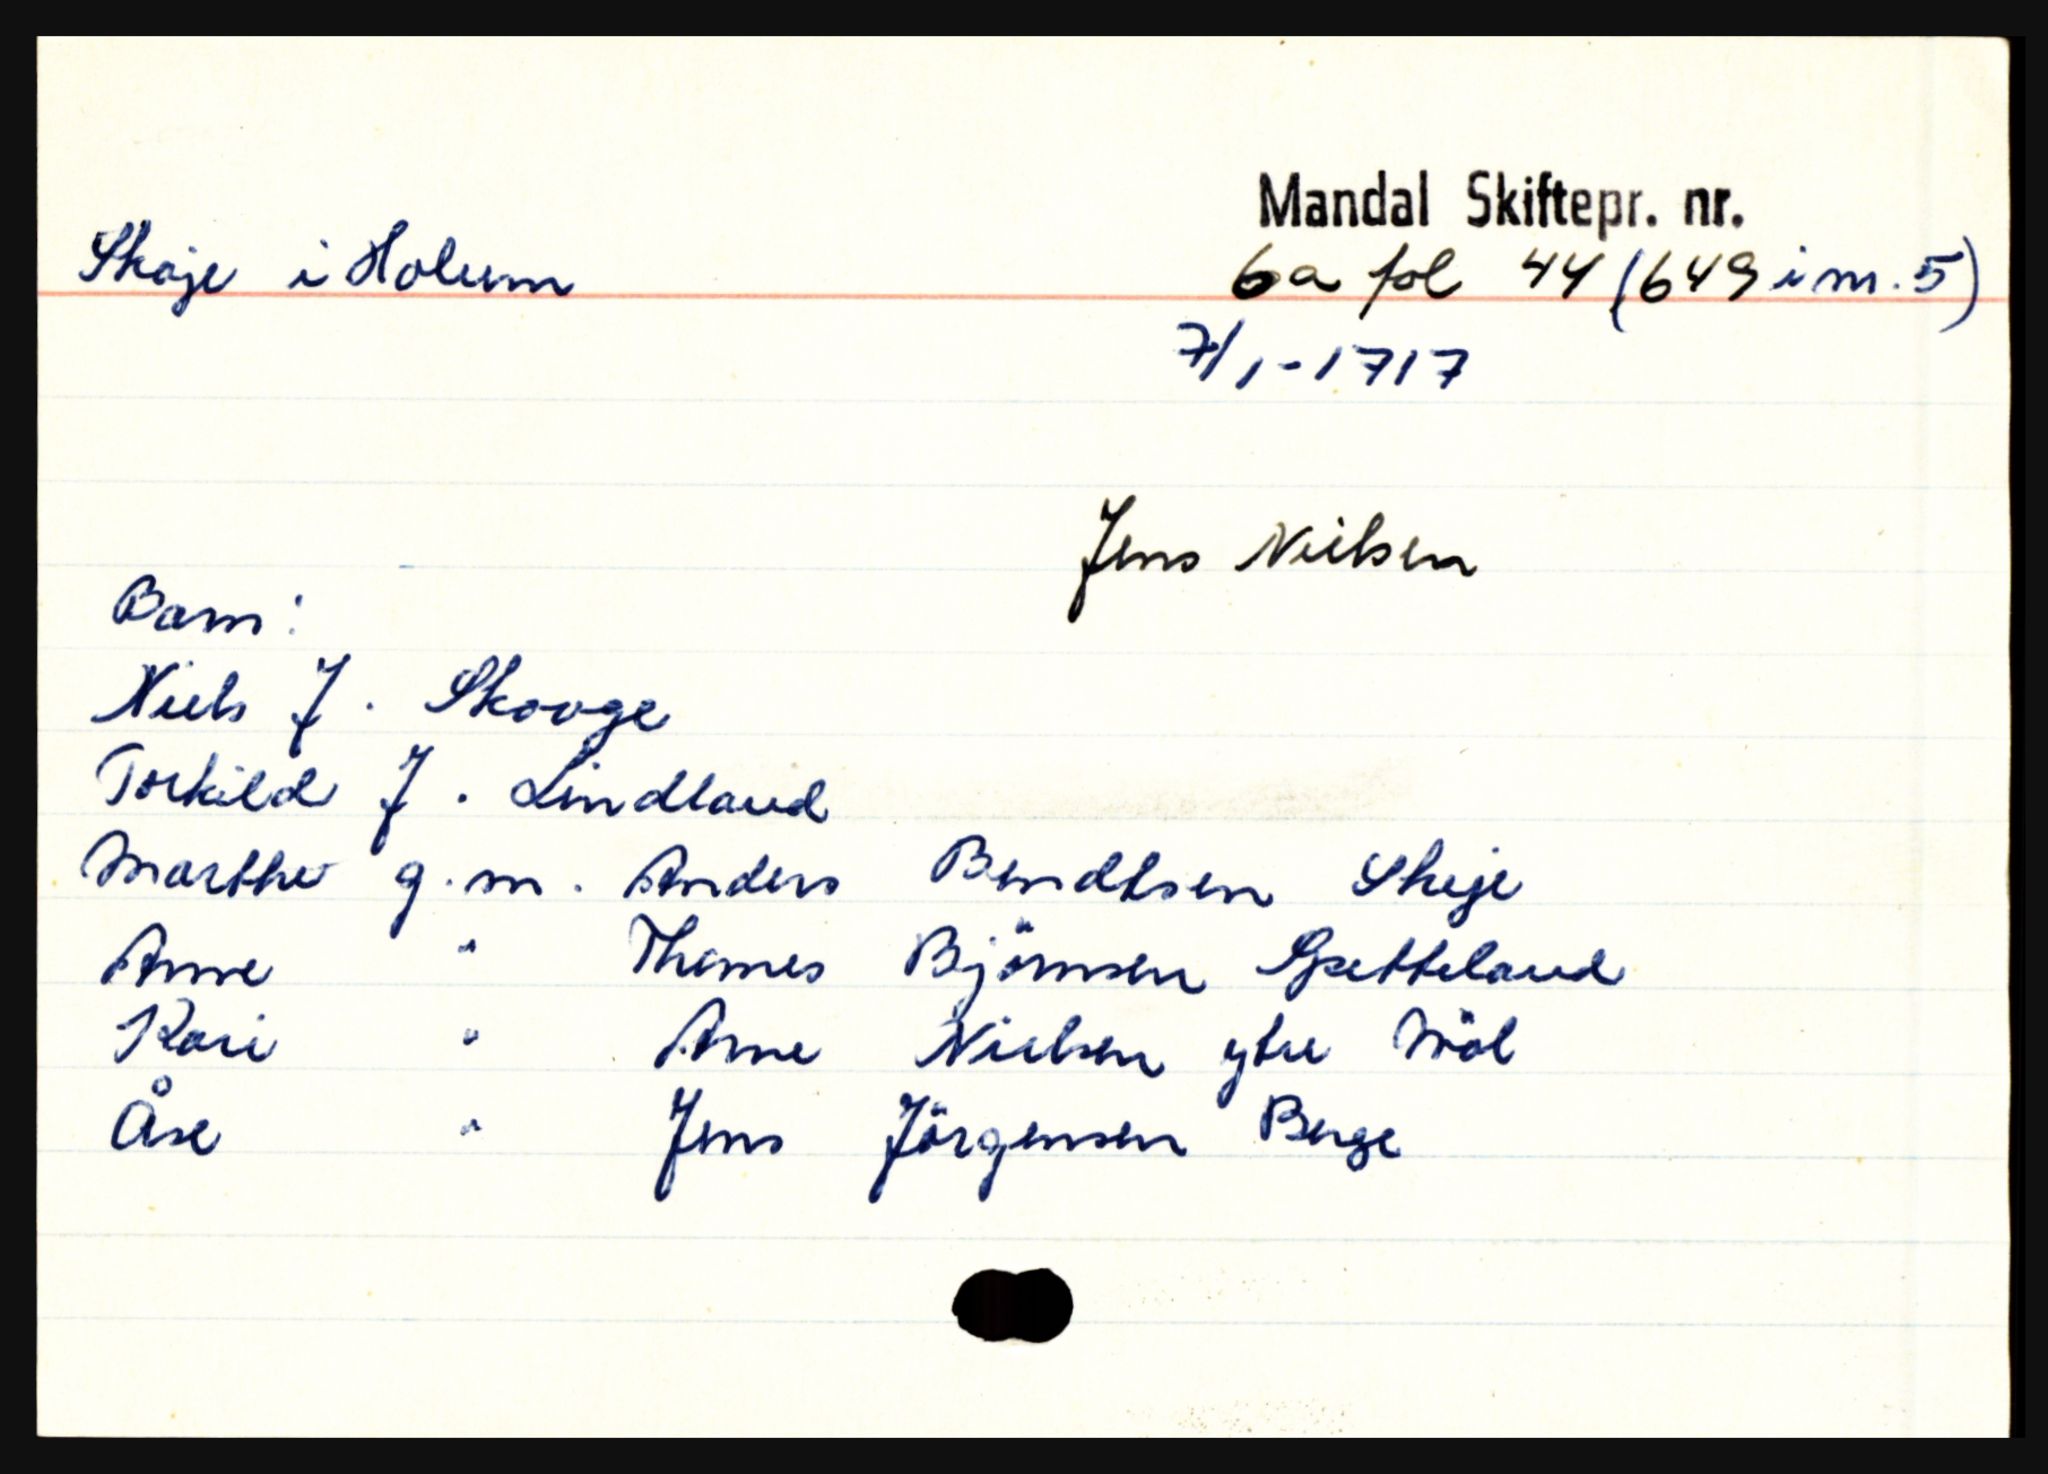 Mandal Skiftepr. nr.
Skøje i Holum 6a fol 44 (649 i m. 5)
7/1-1717
Jens Nielsen
Barn:
Niels J. Skovge
Torkild J. Lindland
Marthe g.m. Anders Bendtsen Skeje
Anne " Thomes Björnsen Gsetteland
Kari " Arne Nielsen ytre Möl
Åse " Jens Jörgensen Berge